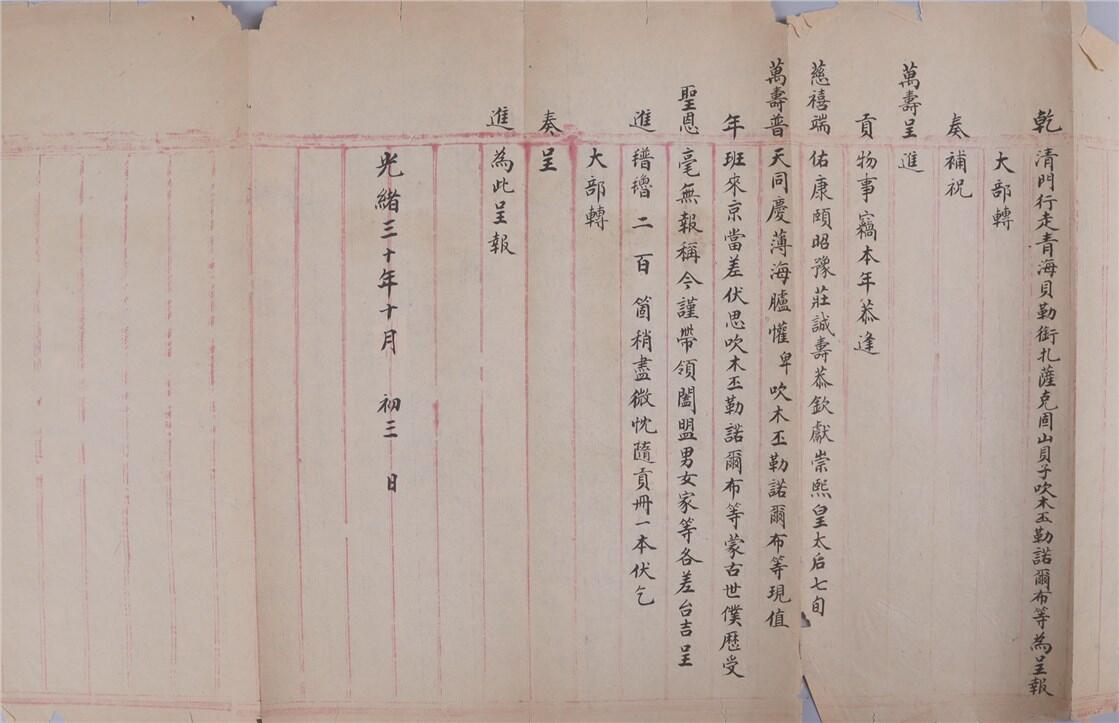 乾清門行走青海貝勒銜扎薩克固山貝子吹木丕勒諾爾布等為呈報
大部轉
奏補祝
萬壽呈進
貢物事竊本年恭逢
慈禧端佑康頤昭豫莊誠壽恭欽獻崇熙皇太后七旬
萬壽普天同慶薄海臚懽卑吹木丕勒諾爾布等現值
年班來京當差伏思吹木丕勒諾爾布等蒙古世僕歷受
聖恩毫無報稱今謹帶領闔盟男女家等各差台吉呈
進氆氌二百箇稍盡微忱隨貢冊一本伏乞
大部轉
奏呈
進為此呈報
光緒三十年十月初三日